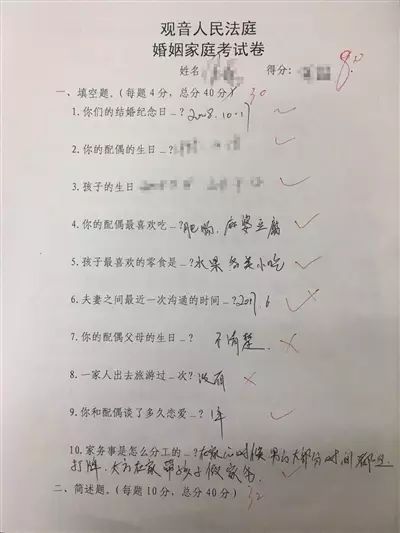 观音人民法庭
婚姻家庭考试卷
姓名 得分: 80
一、填空题。(每题4分，总分40分) 30
1. 你们的结婚纪念日_?2008.10.17
2. 你的配偶的生日_?
3. 孩子的生日
4. 你的配偶最喜欢吃_?肥肠、麻婆豆腐
5. 孩子最喜欢的零食是_?水果 各类小吃
6. 夫妻之间最近一次沟通的时间_?2017.6
7. 你的配偶父母的生日_? 不清楚
8. 一家人出去旅游过_次? 没有
9. 你和配偶谈了多久恋爱_? 1年
10. 家务事是怎么分工的_?在家的时候 男的大部分时间都是
打牌、女的在家带孩子做家务
二、简述题。(每题10分，总分40分) 32